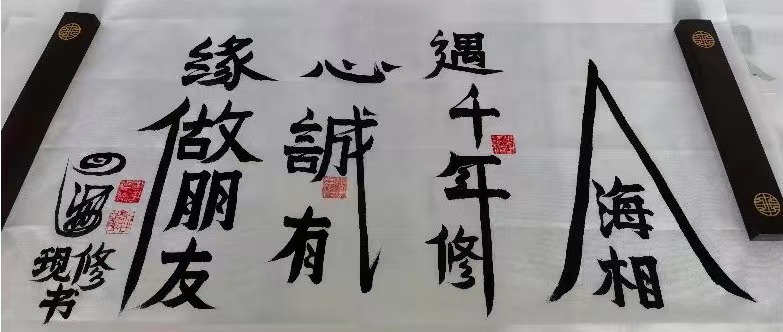 人海相
遇千年修
心誠有
缘做朋友
修
现书